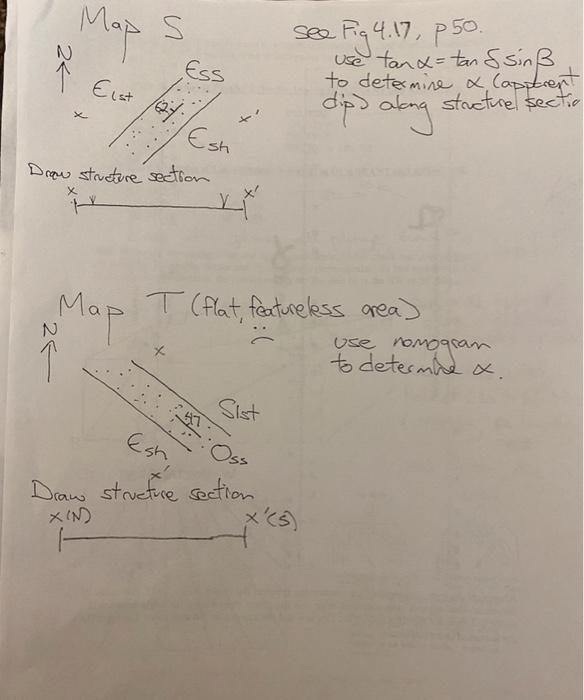 Map S
see Fig 4.17, p 50.
use tan α = tan δ sin β
to determine α (apparent
dip) along structurel sectio
N
Єss
Єlst
62
x
x'
Єsh
Draw structure section
x
x'
Map T (flat, featureless area)
N
x
use nomogram
to determine α.
Slst
47
Єsh
Oss
x'
Draw structure section
X(N)
X'(S)